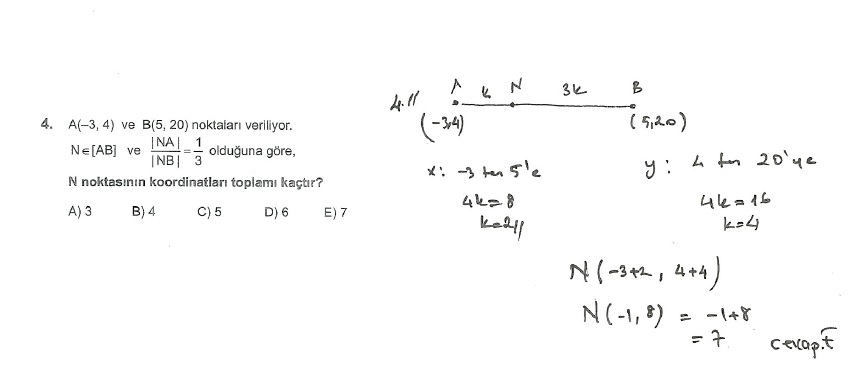 4. A(–3, 4) ve B(5, 20) noktaları veriliyor.
N∈[AB] ve |NA|/|NB| = 1/3 olduğuna göre,
N noktasının koordinatları toplamı kaçtır?
A) 3 B) 4 C) 5 D) 6 E) 7
4.//
A k N 3k B
(-3,4) (5,20)
x: -3 ten 5'e
4k=8
k=2//
y: 4 ten 20'ye
4k=16
k=4
N(-3+2, 4+4)
N(-1,8) = -1+8
= 7
cevap:E